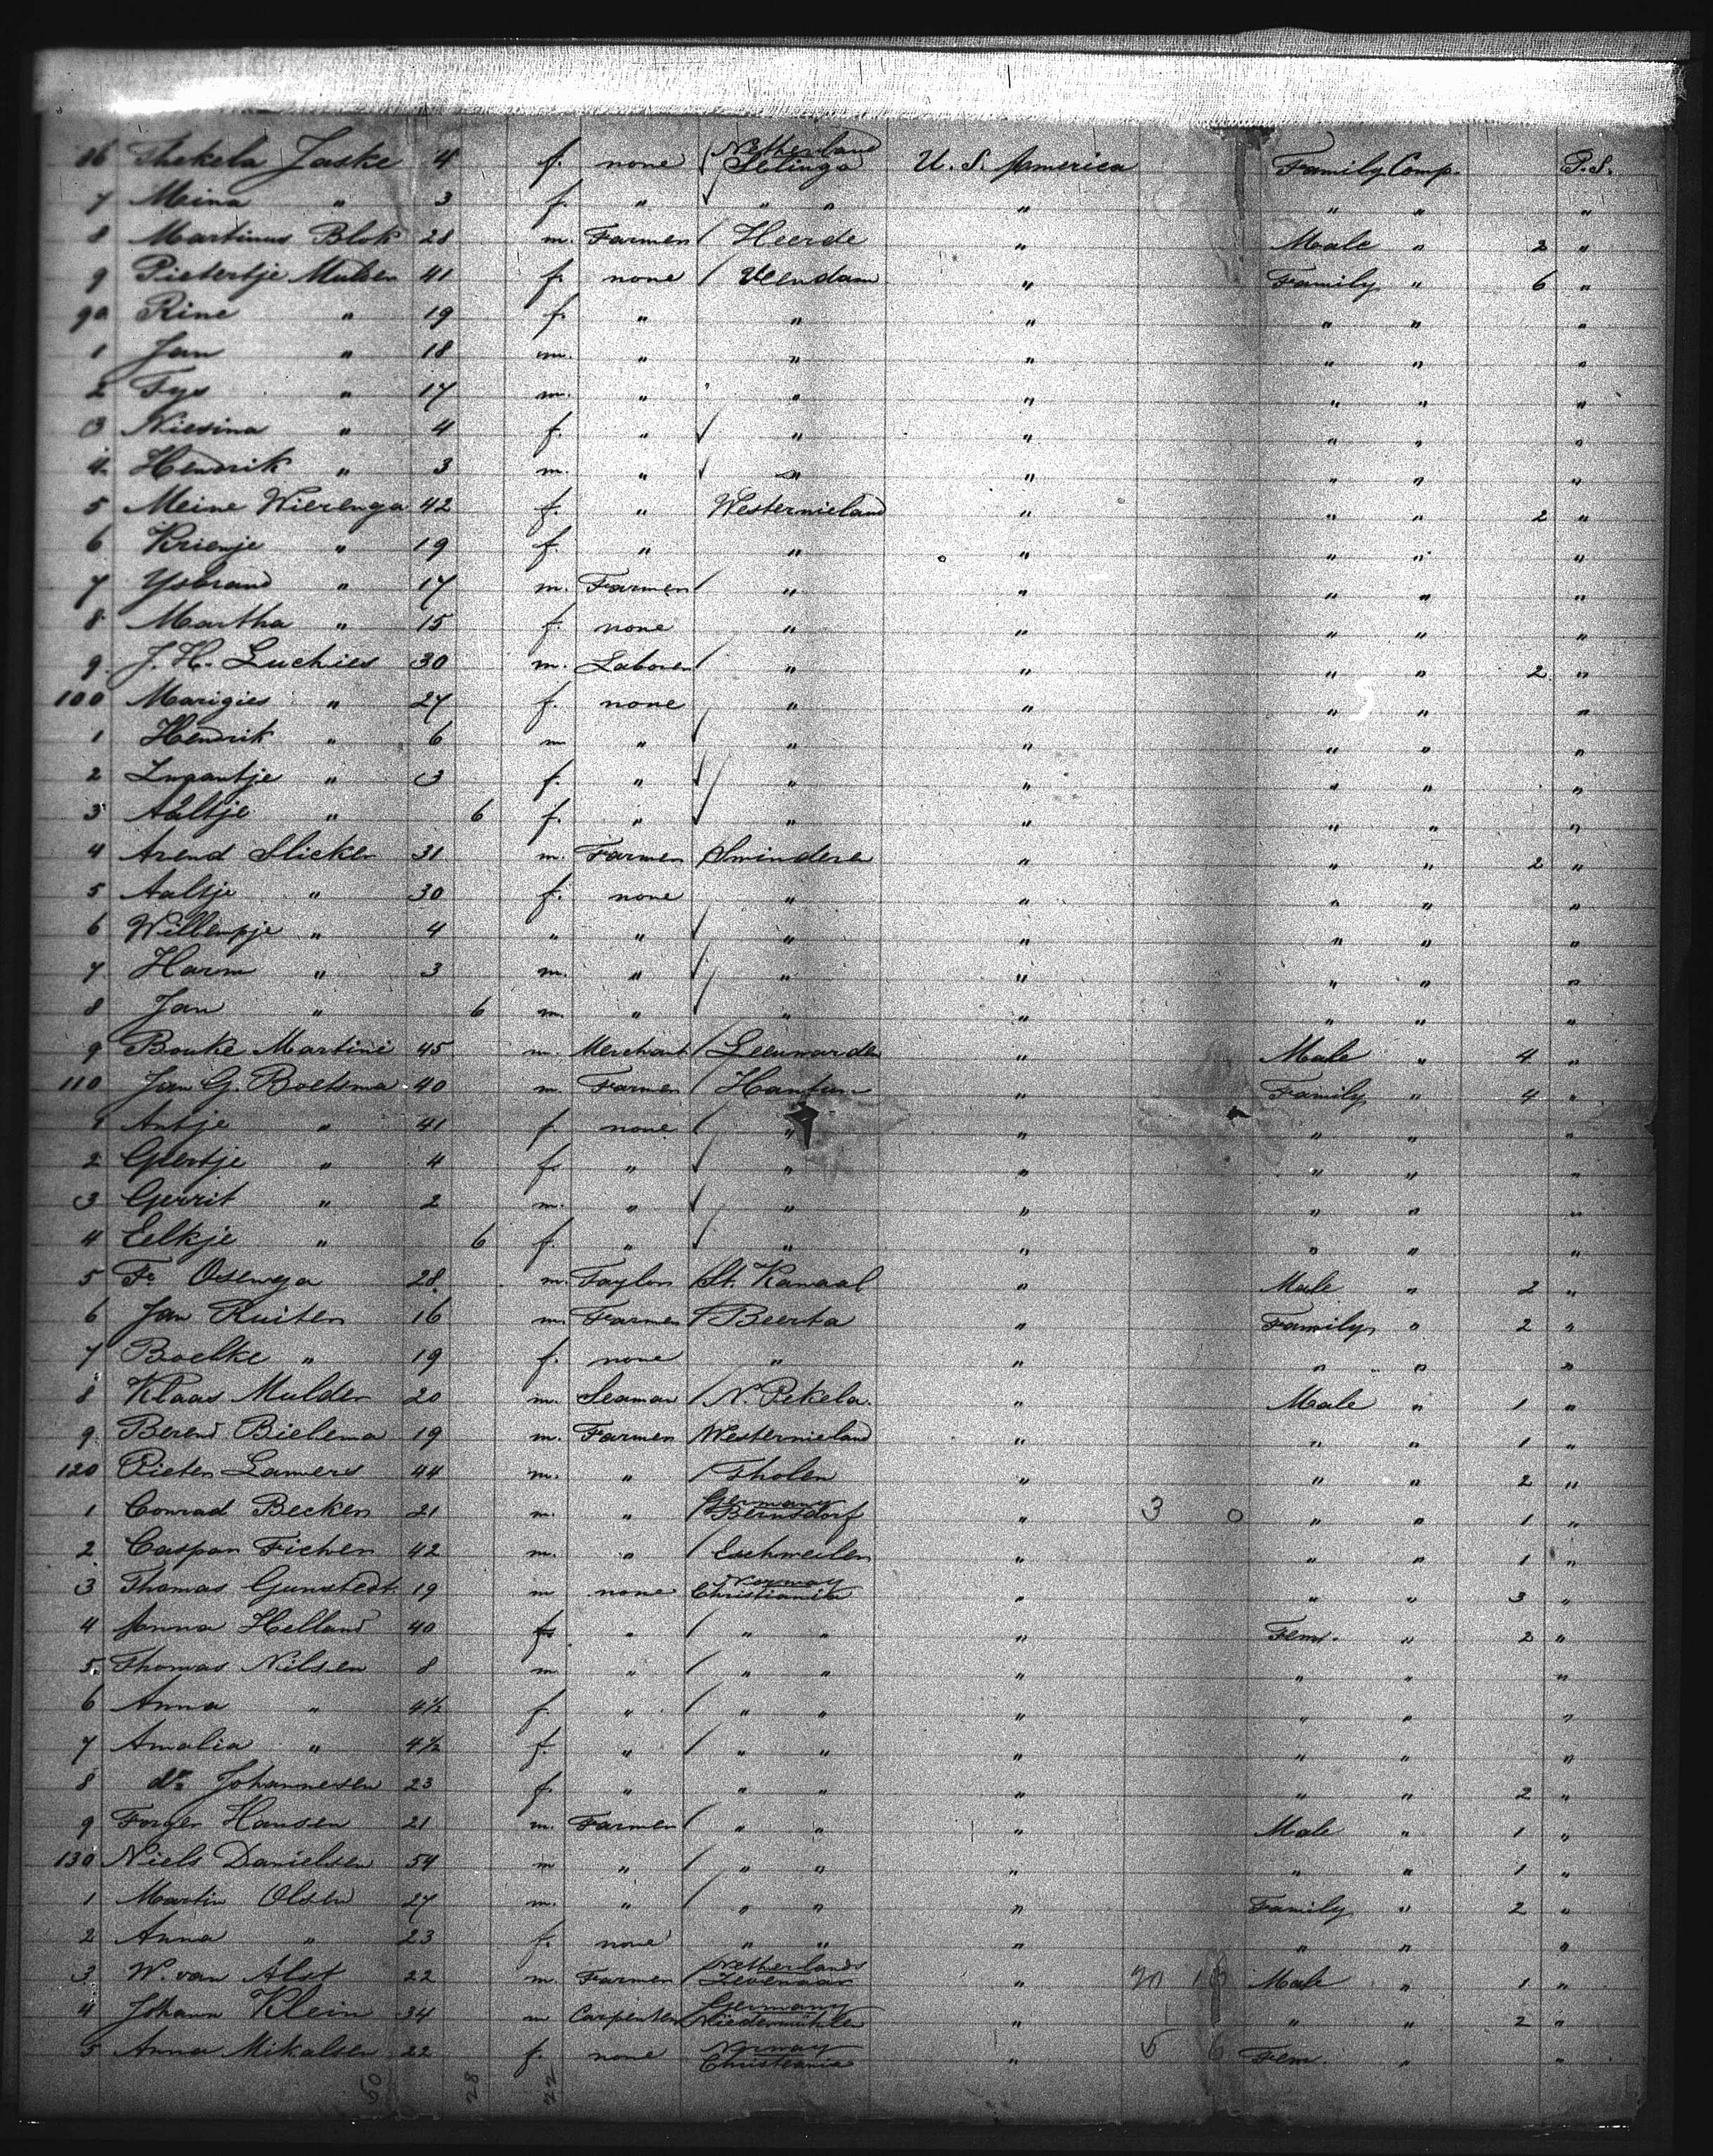 86 Thekela Jaske 4 f. none Netherland U. S. America Family Comp. P.S.
7 Meina " 3 f. " " " " " " "
8 Martinus Blok 28 m. Farmer Heerde " Male " 2 "
9 Pietertje Mulder 41 f. none Veendam " Family " 6 "
90 Rine " 19 f. " " " " " "
1 Jan " 18 m. " " " " " "
2 Fys " 17 m. " " " " " "
3 Niesina " 4 f. " " " " " "
4 Hendrik " 3 m. " " " " " "
5 Meine Wierenga 42 f. " Westernieland " " " 2 "
6 Krienje " 19 f. " " " " " "
7 Ysbrand " 17 m. Farmer " " " " "
8 Martha " 15 f. none " " " " "
9 J. H. Luchies 30 m. Laborer " " " " 2 "
100 Marigies " 27 f. none " " " " "
1 Hendrik " 6 m " " " " " "
2 " 3 f. " " " " " "
3 Aaltje " 6 f. " " " " " "
4 Arend Slicker 31 m. Farmer Smindere " " " 2 "
5 Aaltje " 30 f. none " " " " "
6 Willempje " 4 " " " " " " "
7 Harm " 3 m. " " " " " "
8 Jan " 6 m. " " " " " "
9 Bouke Martini 45 m. Merchant Leeuwarden " Male " 4 "
110 Jan G. Boetsma 40 m. Farmer Hantum " Family " 4 "
1 Antje " 41 f. none " " " " "
2 Geertje " 4 f. " " " " " "
3 Gerrit " 2 m. " " " " " "
4 Eelkje " 6 f. " " " " " "
5 Fe Osenga 28 m. Taylor St. Kanaal " Male " 2 "
6 Jan Ruiter 16 m. Farmer Beerta " Family " 2 "
7 Boelke " 19 f. none " " " " "
8 Klaas Mulder 20 m. Seaman N. Pekela. " Male " 1 "
9 Berend Bielema 19 m. Farmer Westernieland " " " 1 "
120 Pieter Lamers 44 m. " Tholen " " " 2 "
1 Conrad Becker 21 m. " Germany Bernsdorf " 3 0 " " 1 "
2 Caspar Ficher 42 m. " Eschweiler " " " 1 "
3 Thomas Gunstedt 19 m none Norway Christiania " " " 3 "
4 Anna Helland 40 f. " " " " Fem. " 2 "
5. Thomas Nilsen 8 m. " " " " " " "
6 Anna " 4½ f. " " " " " " "
7 Amalia " 4½ f. " " " " " " "
8 do Johannesen 23 f. " " " " " " 2 "
9 Torger Hansen 21 m. Farmer " " " Male " 1 "
130 Niels Danielsen 54 m " " " " " " 1 "
1 Martin Olsen 27 m. " " " " Family " 2 "
2 Anna " 23 f. none " " " " " "
3 W. van Alst 22 m. Farmer Netherlands Zevenaar " Male " 1 "
4 Johann Klein 34 m Carpenter Germany Niedermühlen " " " 2 "
5 Anna Mikalsen 22 f. none Norway Christiania " 5 6 Fem. " "
60 28 22